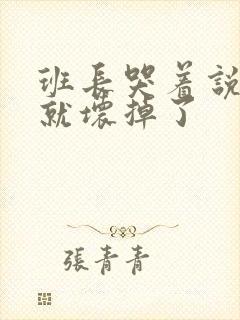 班長哭着說
就壞掉了
張青青